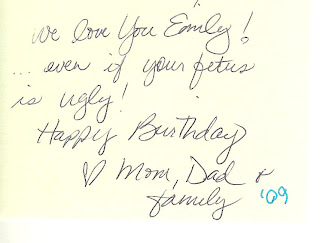 we love You Emily!
... even if your fetus
is ugly!
Happy Birthday
♡ Mom, Dad +
family '09